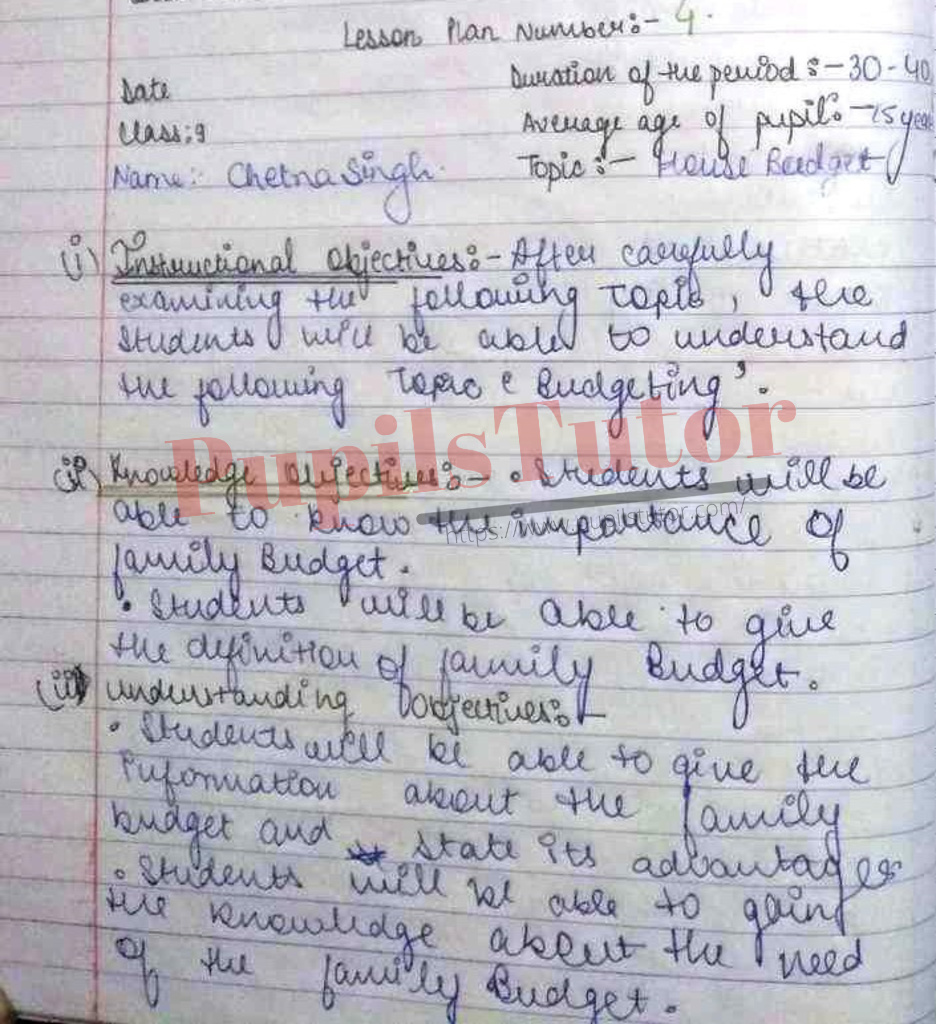 Lesson Plan Number:- 4.
Date
Duration of the period :- 30-40
Class: 9
Average age of pupil:- 15 year
Name:- Chetna Singh.
Topic:- House Budget
(i) Instructional Objectives:- After carefully
examining the following Topic, the
students will be able to understand
the following Topic 'Budgeting'.
PupilsTutor
https://www.pupilstutor.com/
(ii) Knowledge objectives:- • Students will be
able to know the importance of
family Budget.
• Students will be able to give
the definition of family Budget.
(iii) understanding Objectives:-
• Students will be able to give the
Information about the family
budget and state its advantages
• Students will be able to gain
the knowledge about the need
of the family Budget.